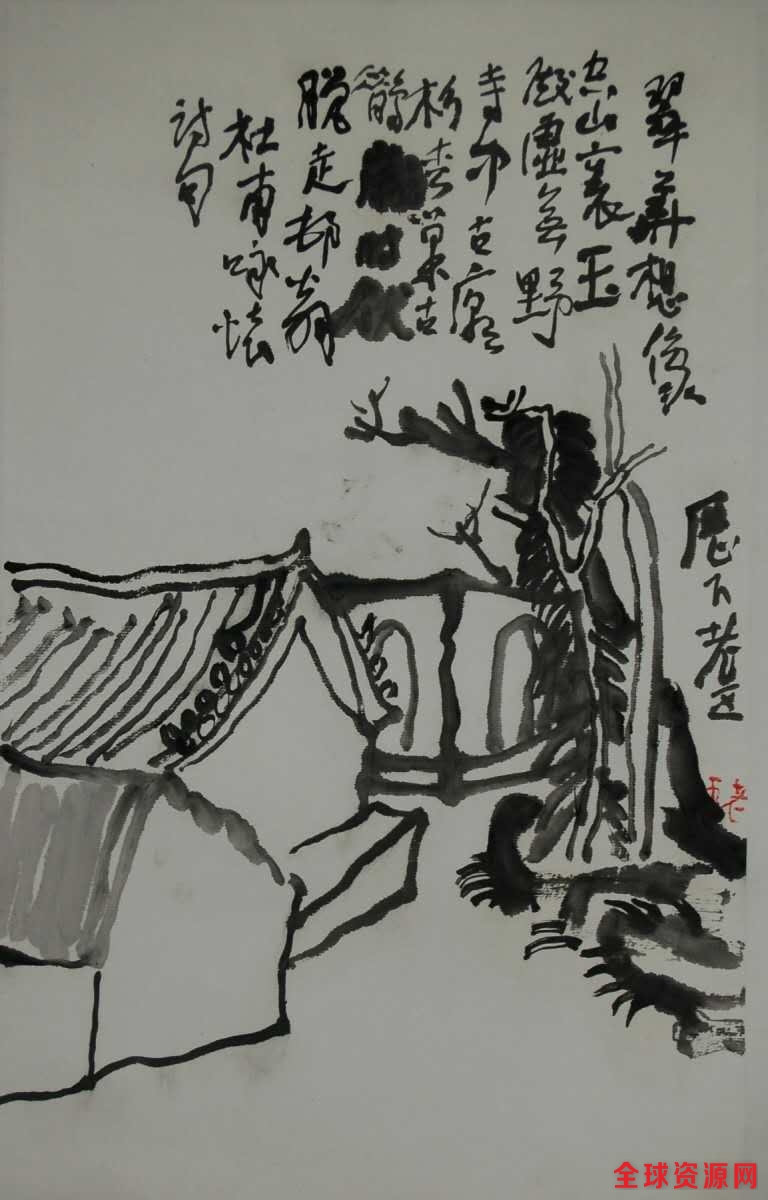 翠華想像
空山裏玉
殿虛無野
寺中古廟
杉松巢
鶴歲時伏
臘走邨翁
杜甫咏懷
詩句
歷下
全球资源网